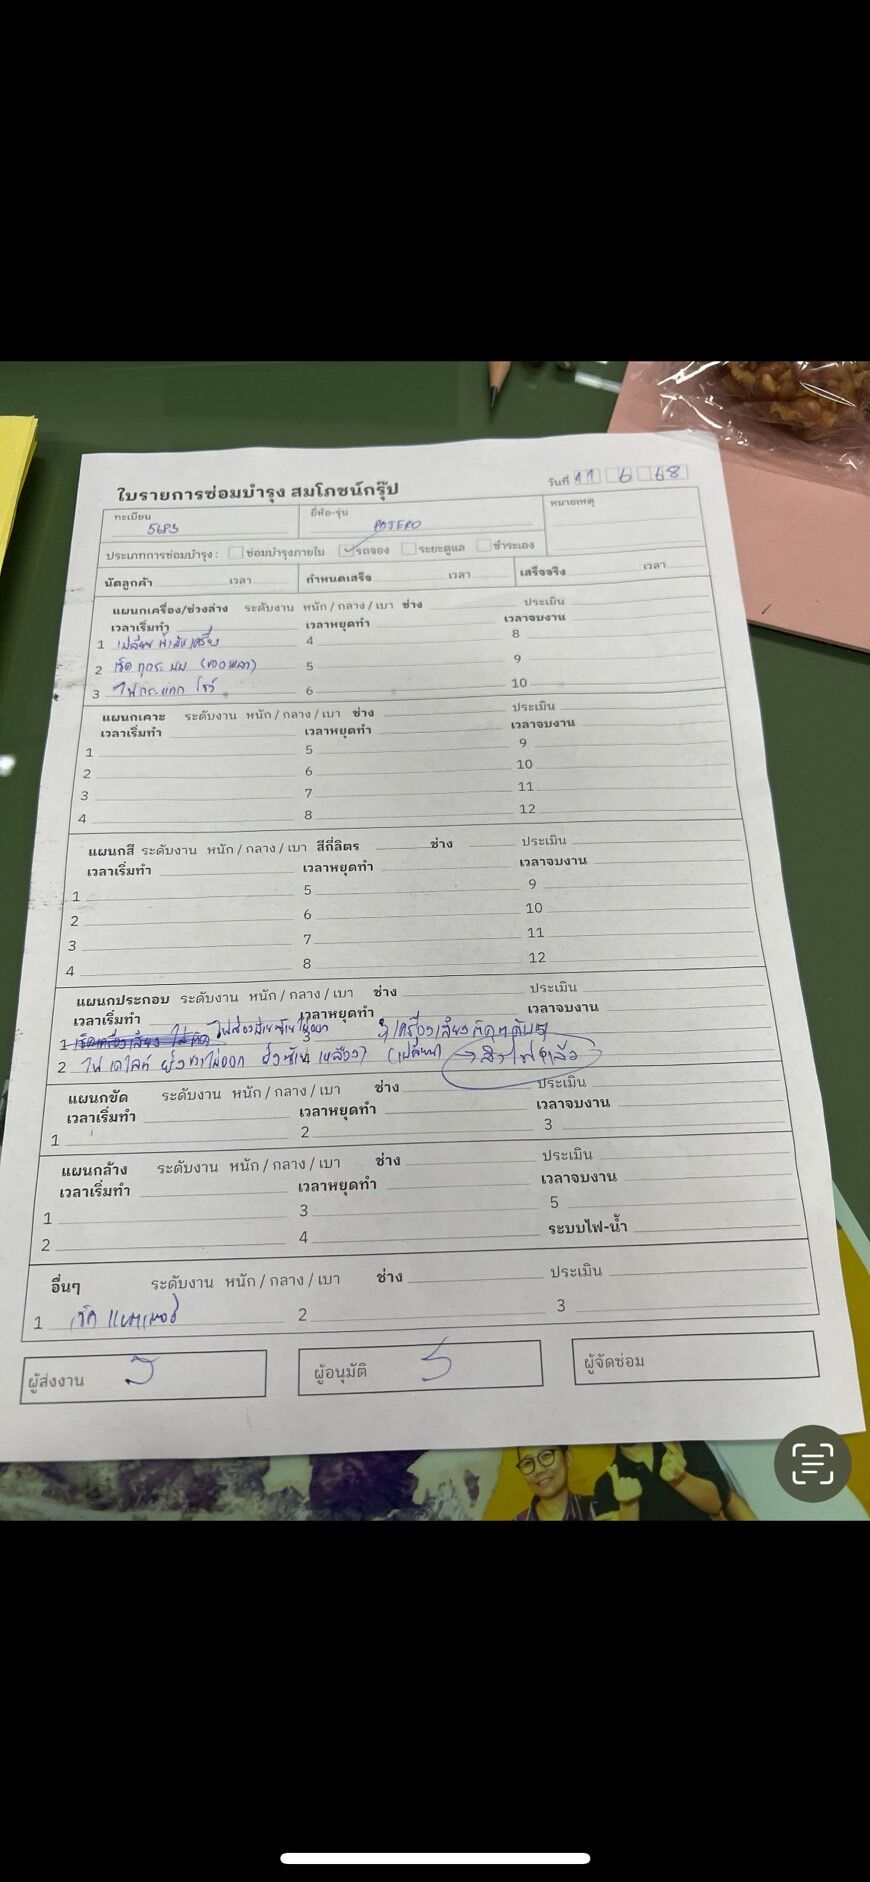 ใบรายการซ่อมบำรุง สมโภชน์กรุ๊ป
วันที่ 11 6 68
ทะเบียน 5683 ยี่ห้อ-รุ่น PAJERO หมายเหตุ
ประเภทการซ่อมบำรุง : ซ่อมบำรุงภายใน รถจอง ระยะดูแล ชำระเอง
นัดลูกค้า เวลา กำหนดเสร็จ เวลา เสร็จจริง เวลา
แผนกเครื่อง/ช่วงล่าง ระดับงาน หนัก / กลาง / เบา ช่าง ประเมิน
เวลาเริ่มทำ เวลาหยุดทำ เวลาจบงาน
1 เปลี่ยนน้ำมันเครื่อง 4 8
2 เช็ค 5 9
3 ไฟกระแทก โชว์ 6 10
แผนกเคาะ ระดับงาน หนัก / กลาง / เบา ช่าง ประเมิน
เวลาเริ่มทำ เวลาหยุดทำ เวลาจบงาน
1 5 9
2 6 10
3 7 11
4 8 12
แผนกสี ระดับงาน หนัก / กลาง / เบา สีกี่ลิตร ช่าง ประเมิน
เวลาเริ่มทำ เวลาหยุดทำ เวลาจบงาน
1 5 9
2 6 10
3 7 11
4 8 12
แผนกประกอบ ระดับงาน หนัก / กลาง / เบา ช่าง ประเมิน
เวลาเริ่มทำ เวลาหยุดทำ เวลาจบงาน
1 เช็คเครื่องเสียง ไฟส่องป้าย ไม่ออก 3 เครื่องเสียงติดๆดับๆ
2 ไฟเดไลท์ ฝั่งขวาไม่ออก ฝั่งซ้าย เหลือง (เปลี่ยน) → สั่งไฟแล้ว
แผนกขัด ระดับงาน หนัก / กลาง / เบา ช่าง ประเมิน
เวลาเริ่มทำ เวลาหยุดทำ เวลาจบงาน
1 2 3
แผนกล้าง ระดับงาน หนัก / กลาง / เบา ช่าง ประเมิน
เวลาเริ่มทำ เวลาหยุดทำ เวลาจบงาน
1 3 5
2 4 ระบบไฟ-น้ำ
อื่นๆ ระดับงาน หนัก / กลาง / เบา ช่าง ประเมิน
1 เช็ค แบตเตอรี่ 2 3
ผู้ส่งงาน ผู้อนุมัติ ผู้จัดซ่อม